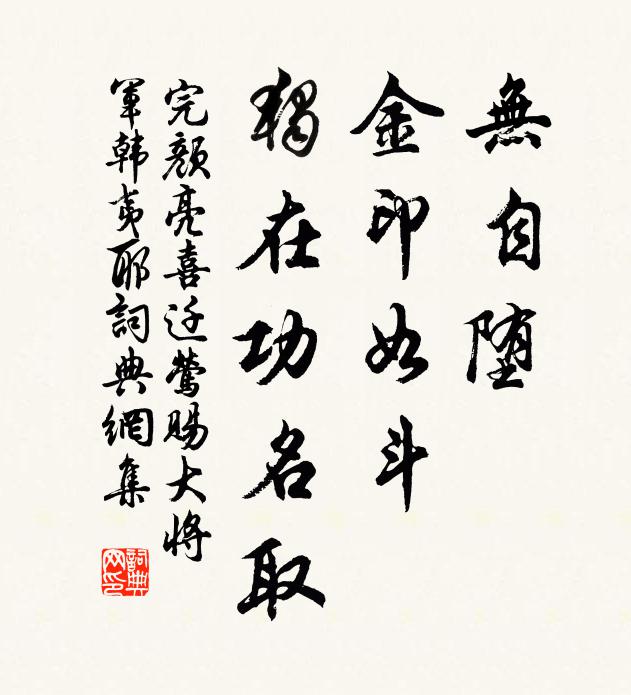 無自堕
金印如斗
獨在功名取
完顏亮喜迁鶯賜大將
軍韓夷耶詞典網集
詞典網印